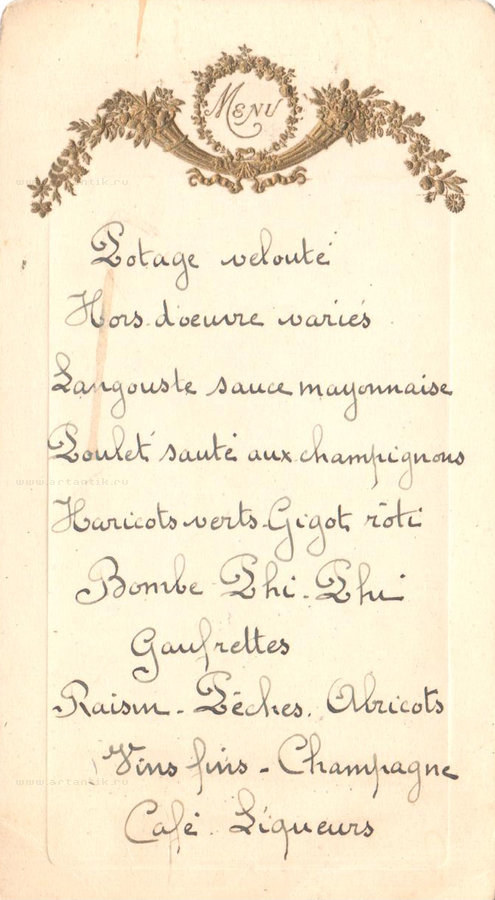 Menu
Potage velouté
Hors d'oeuvre variés
Langouste sauce mayonnaise
Poulet sauté aux champignons
Haricots verts - Gigot rôti
Bombe Phi-Phi
Gaufrettes
Raisin - Pêches. Abricots
Vins fins - Champagne
Café. Liqueurs
www.artantik.ru
www.artantik.ru
www.artantik.ru